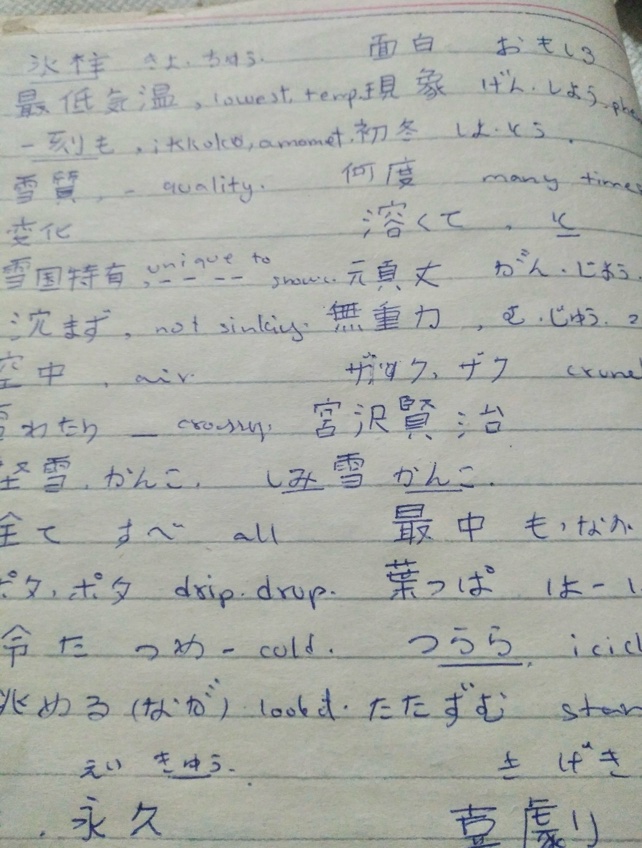 氷柱 きょ.ちゅう. 面白 おもしろ
最低気温, lowest, temp. 現象 げん.しょう.
一刻も, ikkoku, a momet. 初冬 しょ.とう.
雪質, - quality. 何度 many time
変化 溶くて. と
雪国特有, unique to snow.. 元頁丈 がん.じょう.
沈まず, not sinking. 無重力, む.じゅう.
空中, air. ザック, ザク crun
わたり — crossing. 宮沢賢治
雪, かんこ, しみ雪 かんこ.
全て すべ all 最中 も,なか
ポタ, ポタ drip.drop. 葉っぱ は-
冷た つめ- cold. つらら, icicl
眺める (なが) lookd. たたずむ stan
えいきゅう. きげき
. 永久 喜劇